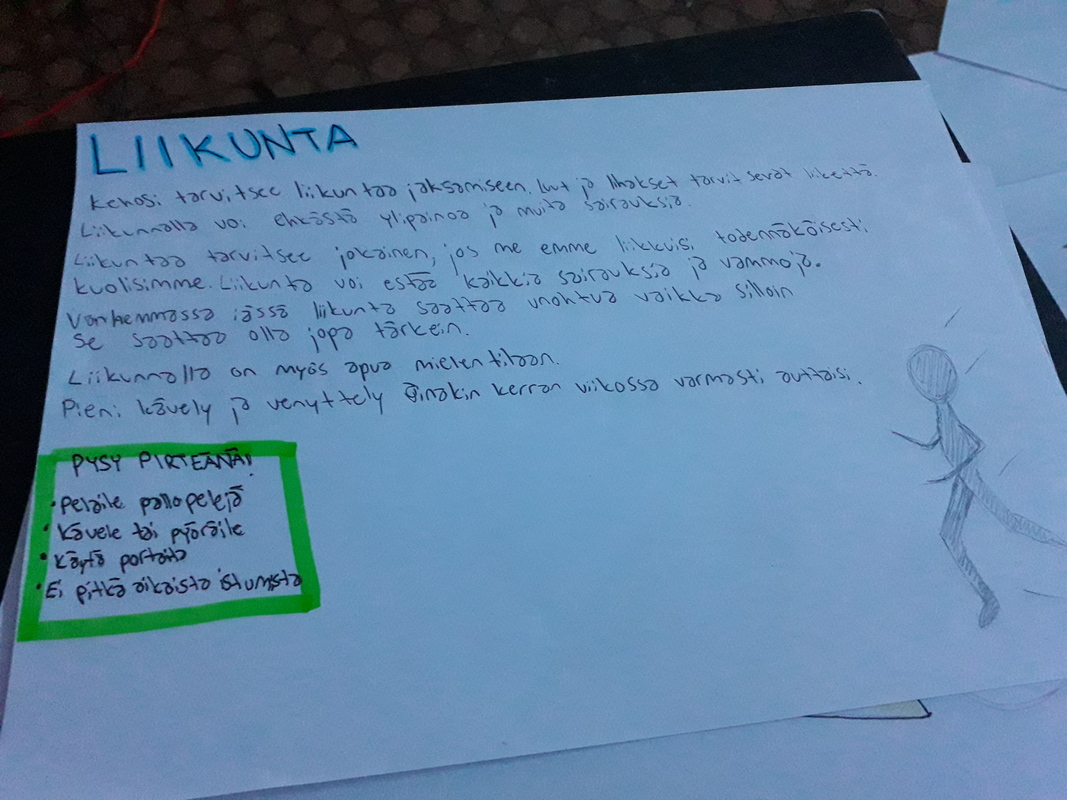 LIIKUNTA
Kehosi tarvitsee liikuntaa jaksamiseen. Luut ja lihakset tarvitsevat liikettä.
Liikunnalla voi ehkästä ylipainoa ja muita sairauksia.
Liikuntaa tarvitsee jokainen, jos me emme liikkuisi todennäköisesti
kuolisimme. Liikunta voi estää kaikkia sairauksia ja vammoja.
Vanhemmassa iässä liikunta saattaa unohtua vaikka silloin
se saattaa olla jopa tärkein.
Liikunnalla on myös apua mielentilaan.
Pieni kävely ja venyttely ainakin kerran viikossa varmasti auttaisi.
PYSY PIRTEÄNÄ!
• Pelaile pallopelejä
• Kävele tai pyöräile
• Käytä portaita
• Ei pitkä aikaista istumista